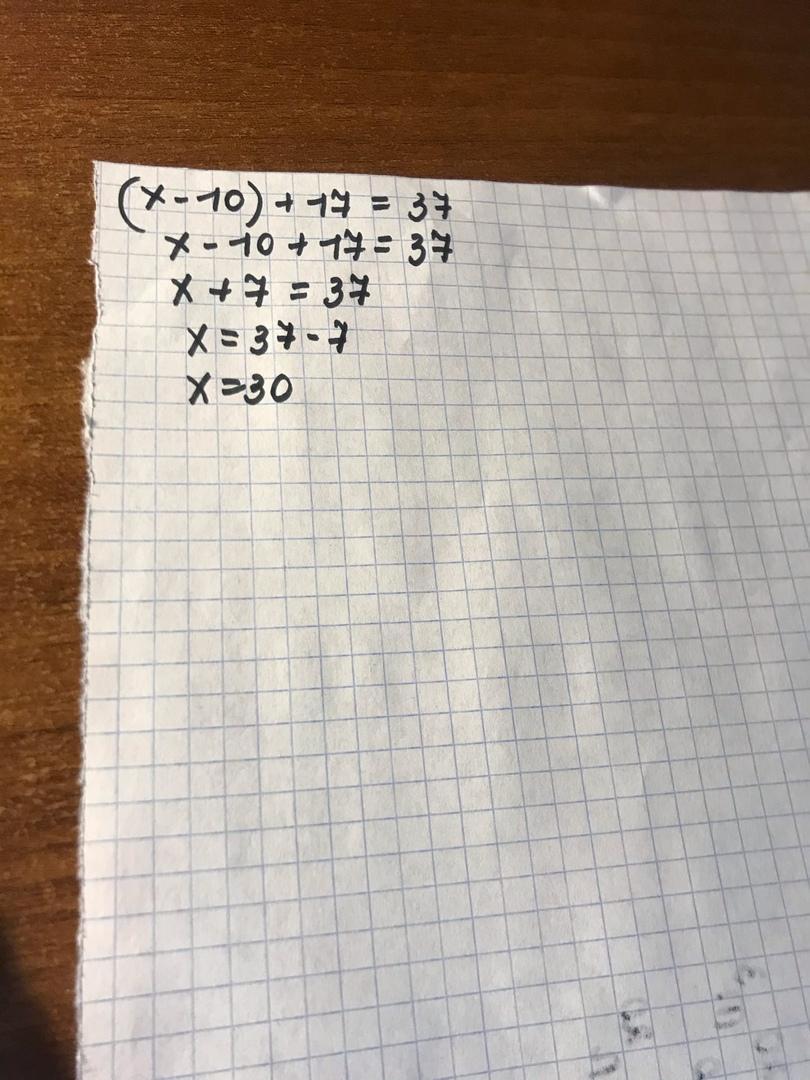 (x-10)+17=37
x-10+17=37
x+7=37
x=37-7
x=30